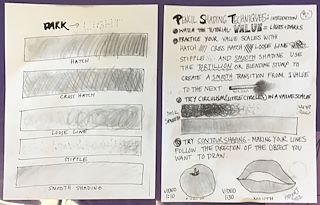 DARK → LIGHT
HATCH
CROSS HATCH
LOOSE LINE
STIPPLE
SMOOTH SHADING
PENCIL SHADING TECHNIQUES:
WATCH THE TUTORIAL VALUE = LIGHTS + DARKS
PRACTICE YOUR VALUE SCALES WITH
HATCH /// CROSS HATCH LOOSE LINE
STIPPLE AND SMOOTH SHADING USE
THE TORTILLON OR BLENDING STUMP TO
CREATE A SMOOTH TRANSITION FROM 1 VALUE
TO THE NEXT
TRY CIRCULISM (LITTLE CIRCLES) IN A VALUE SCALE
TRY CONTOUR SHADING - MAKING YOUR LINES
FOLLOW THE DIRECTION OF THE OBJECT YOU
WANT TO DRAW.
VIDEO
1:10
VIDEO
1:30
MOUTH